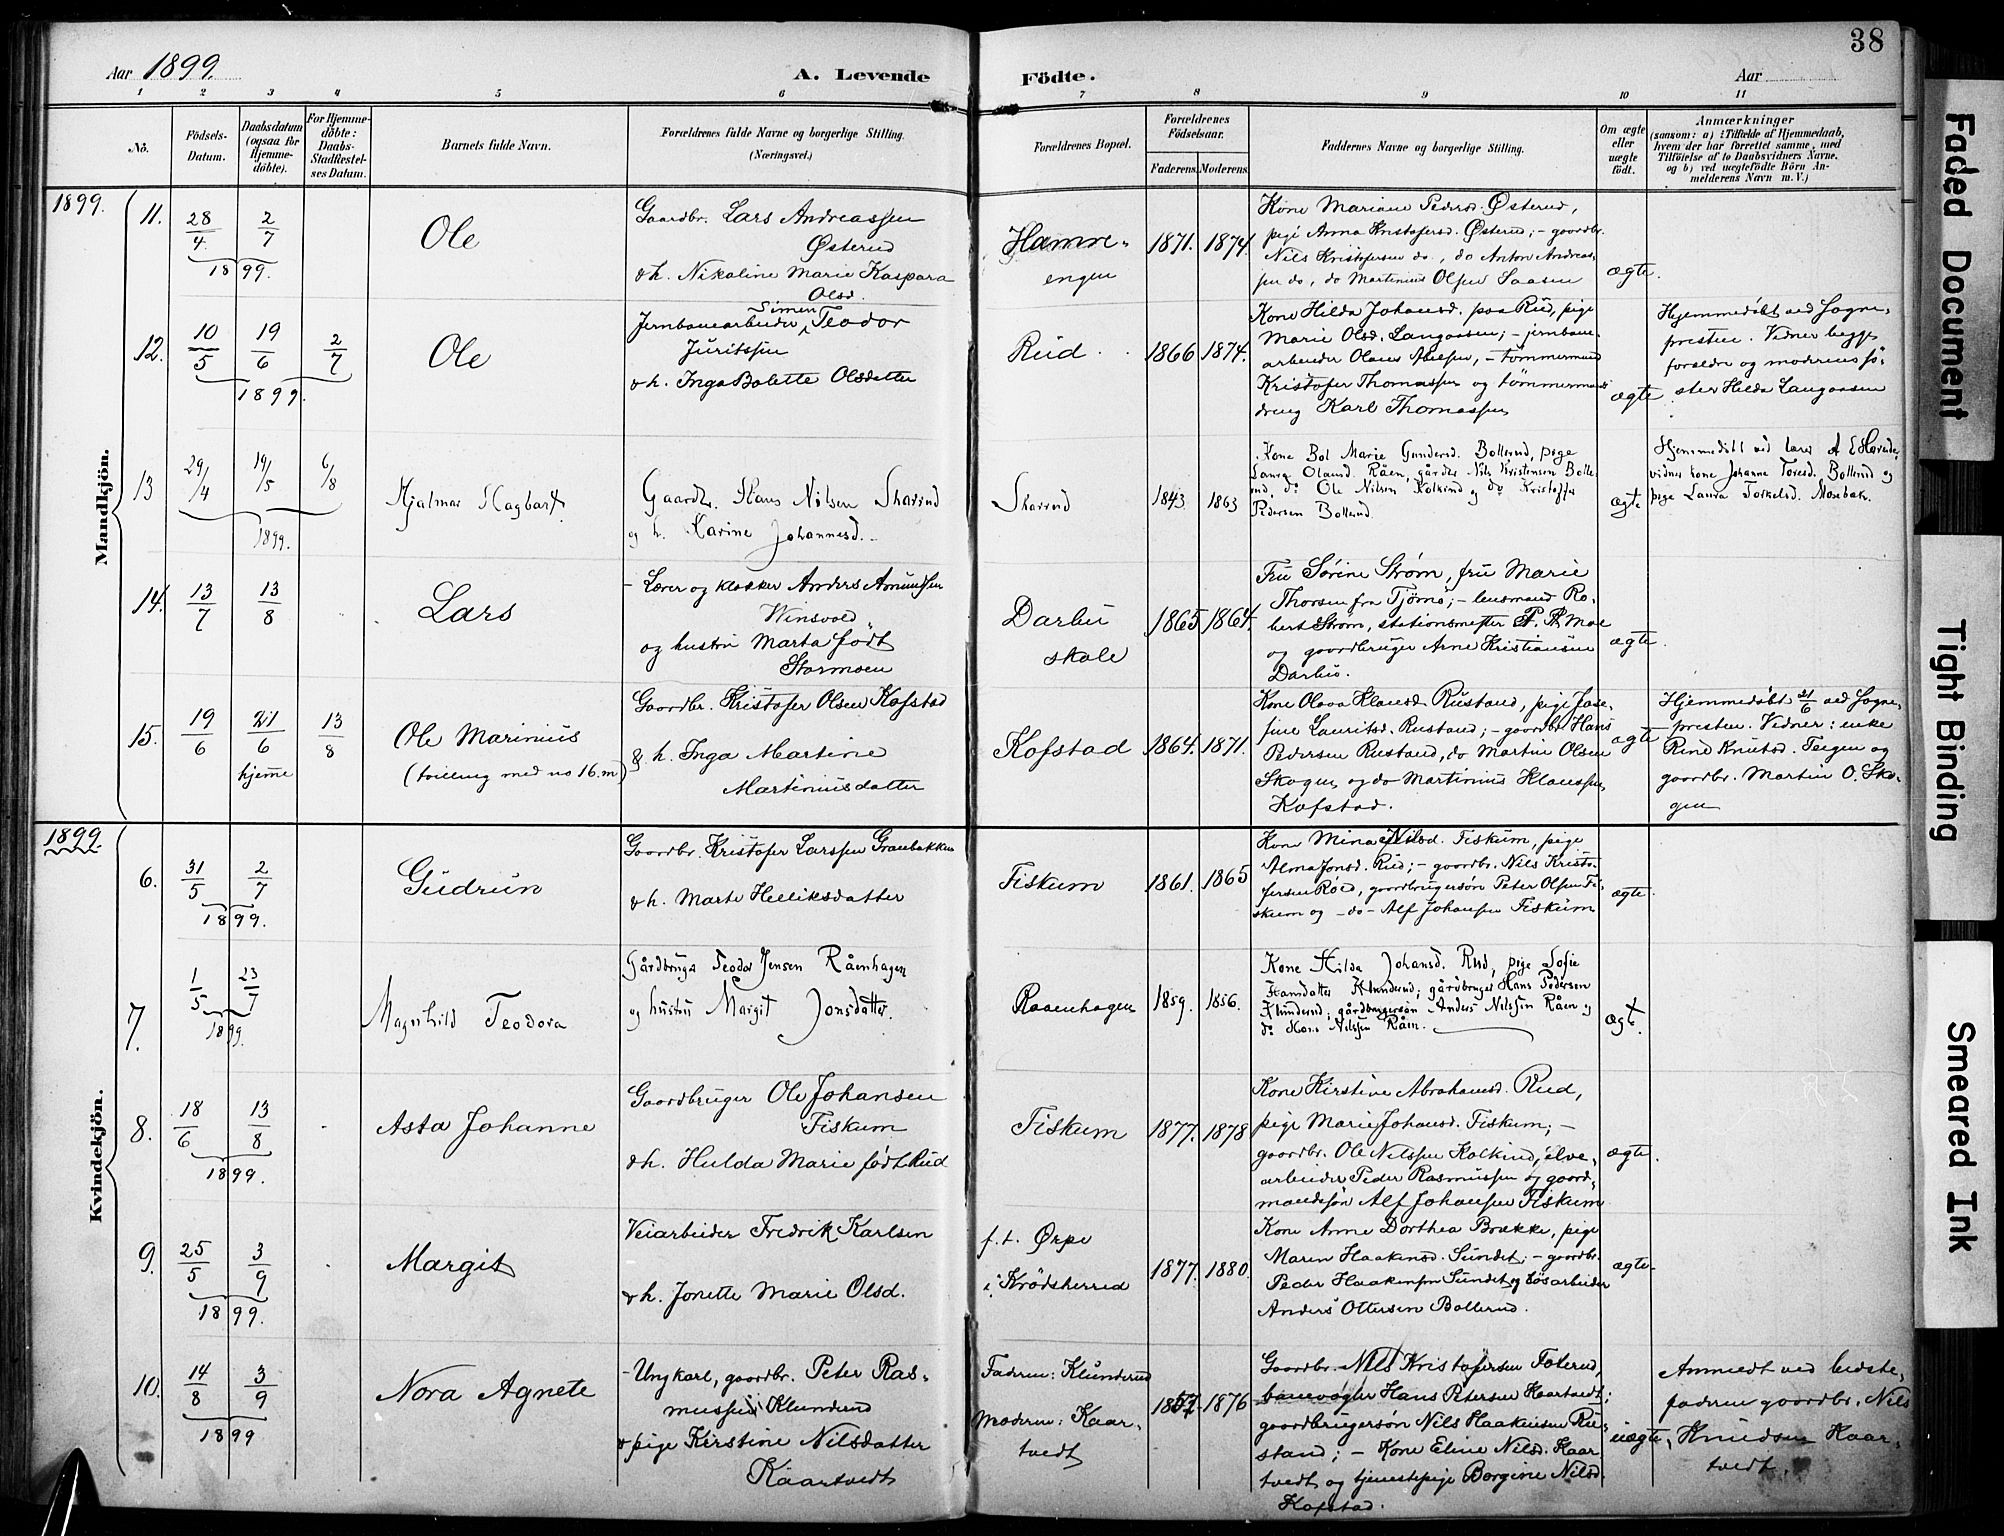 38
Aar 1899.
A. Levende Födte.
Aar
1 2 3 4 5 6 7 8 9 10 11
No.
Födsels-
Datum.
Daabsdatum
(ogsaa for
Hjemme-
døbte).
For Hjemme-
døbte:
Daabs-
Stadfæstel-
ses Datum.
Barnets fulde Navn.
Forældrenes fulde Navne og borgerlige Stilling.
(Næringsvei.)
Forældrenes Bopæl.
Forældrenes
Födselsaar.
Faderens. Moderens.
Faddernes Navne og borgerlige Stilling.
Om ægte
eller
uægte
født.
Anmærkninger
(saasom: a) i Tilfælde af Hjemmedaab,
hvem der har forrettet samme, med
Tilföielse af to Daabsvidners Navne,
og b) ved uægtefödte Börn An-
melderens Navn m. V.)
Mandkjön.
1899.
11. 28/4 2/7
1899.
Ole
Gaardbr. Lars Andreassen
Østerud
& h. Nikoline Marie Kaspara
Olsd.
Hamre-
engen
1871. 1874.
Kone Mariane Pedersd. Østerud,
pige Anna Kristofersd. Østerud; - gaardbr.
Nils Kristofersen do, do Anton Andreas-
sen do, do Martinius Olsen Saasen
ægte.
12. 10/5 19/6 2/7
1899.
Ole
Jernbanearbeider Simen Teodor
Juritssen
& h. Inga Bolette Olsdatter
Rud.
1866 1874.
Kone Hilda Johansd. paa Rud, pige
Marie Olsd. Langaasen; - jernbane-
arbeider Olaus Abelsen, - tømmermand
Kristofer Thomassen og tømmermands
dreng Karl Thomassen
ægte
Hjemmedøbt ved Sogne-
presten. Vidner begge
foreldre og moderens sø-
ster Hilda Langaasen
13 29/4 19/5 6/8
1899.
Hjalmar Hagbart
Gaardb. Hans Nilsen Skarrud
og h. Karine Johannesd.
Skarrud
1843 1863
Kone Bol Marie Gundersd. Bollerud, pige
Laura Olausd. Råen, gårdbr Nils Kristensen Bolle-
rud, do Ole Nilsen Kolkind og do Kristoffer
Pedersen Bollerud.
ægt.
Hjemmedøbt ved lærer
vidner kone Johanne Toresd. Bollerud og
pige Laura Torkelsd. Mosebak.
14. 13/7 13/8
Lars
- Lærer og klokker Anders Amundsen
Winsvold
og hustru Marta født
Stormoen
Darbu
skole
1865 1864.
Fru Sørine Strøm, fru Marie
Thorsen fra Tjømø; - lensmand Ro-
bert Strøm, stationsmester P. R. Moe
og gaardbruger Arne Kristiansen
Darbu.
ægte.
15. 19/6 21/6 13/8
hjeme
Ole Marinius
(tvilling med no 16.m)
Gaardbr. Kristofer Olsen Kofstad
& h. Inga Martine
Martiniusdatter
Kofstad
1864. 1871.
Kone Olava Klausd. Rustand, pige Jose-
fine Lauritsd. Rustand; - gaardbr Hans
Pedersen Rustand, do Martin Olsen
Skogen og do Martinius Klaussen
Kofstad.
ægte
Hjemmedøbt 21/6 ved Sogne-
presten. Vidner: enke
Rine Knutsd. Teigen og
gaardbr. Martin O. Sko-
gen
Kvindekjön.
1899.
6. 31/5 2/7
1899.
Gudrun
Gaardbr. Kristofer Larssen Granbakken
& h. Marte Helliksdatter
Fiskum
1861. 1865
Kone Mina Nilsd. Fiskum, pige
Alma Jonsd. Rud; - gaardbr. Nils Kristo-
fersen Røed, gaardbrugersøn Peter Olsen Fi-
skum og -do- Alf Johansen Fiskum
ægte.
7. 1/5 23/7
1899.
Magnhild Teodora
Gårdbruger Teodor Jensen Råenhagen
og hustru Margit Jonsdatter.
Raaenhagen
1859. 1856.
Kone Hilda Johansd. Rud, pige Sofie
Hansdatter Klunderud; gårdbruger Hans Pedersen
Klunderud; gårdbrugersøn Anders Nilssen Råen og
do Hans Nilssen Råen.
ægt.
8. 18/6 13/8
1899.
Asta Johanne
Gaardbruger Ole Johansen
Fiskum
& h. Hulda Marie født Rud
Fiskum
1877. 1878
Kone Kirstine Abrahamsd. Rud,
pige Marie Johansd. Fiskum; -
gaardbr. Ole Nilssen Kolkind, elve-
arbeider Peder Rasmussen og gaard-
mandssøn Alf Johansen Fiskum
ægte.
9. 25/5 3/9
1899.
Margit
Veiarbeider Fredrik Karlsen
& h. Jonette Marie Olsd.
f. t. Ørpe
i Krødsherred
1877. 1880.
Kone Anne Dorthea Brække, pige
Maren Haakensd. Sundet; - gaardbr.
Peder Haakensen Sundet og løsarbeider
Anders Ottersen Bollerud.
ægte
10. 14/8 3/9
1899
Nora Agnete
- Ungkarl, gaardbr. Peter Ras-
mussen Klunderud
& pige Kirstine Nilsdatter
Kaartvedt
Faderen: Klunderud
Moderen: Kaar-
tvedt
1876
Gaardbr. Nils Kristofersen Foterud,
banevogter Hans Petersen Kaartvedt;
gaardbrugersøn Nils Haakensen Ru-
stand; - Kone Eline Nilsd. Kaar
tvedt og tjenestepige Borgine Nilsd.
Kofstad.
uægte,
Anmeldt ved bedste-
faderen gaardbr. Nils
Knudsen Kaar-
tvedt.
Faded Document
Tight Binding
Smeared Ink